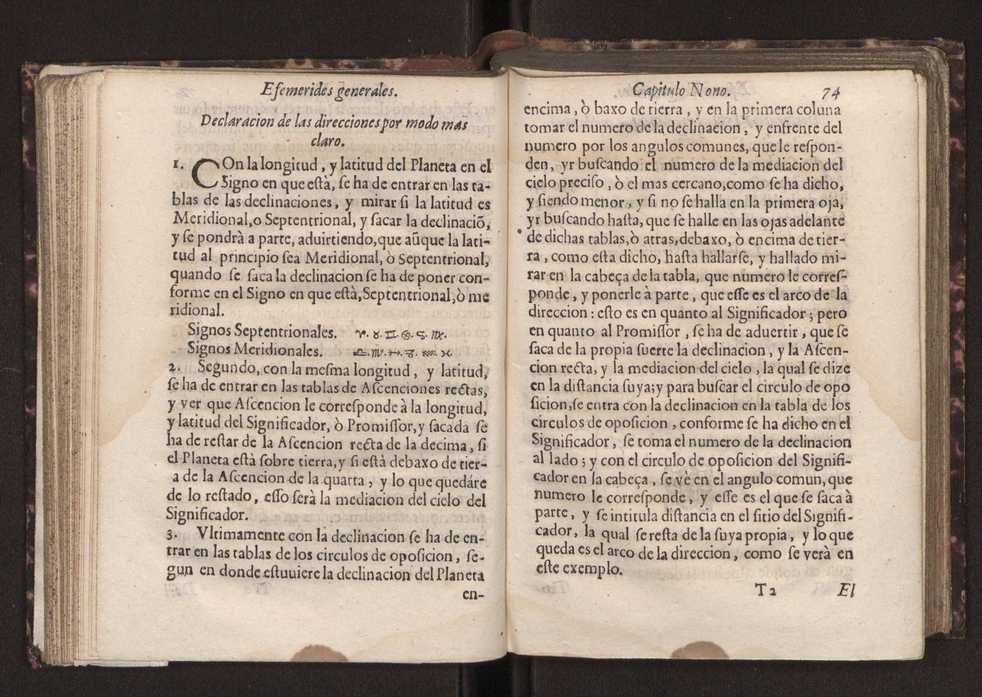 Efemerides generales.
Declaracion de las direcciones por modo mas
claro.
1. COn la longitud, y latitud del Planeta en el
Signo en que està, se ha de entrar en las ta-
blas de las declinaciones, y mirar si la latitud es
Meridional, o Septentrional, y sacar la declinaciõ,
y se pondrà a parte, aduirtiendo, que aũque la lati-
tud al principio sea Meridional, ò Septentrional,
quando se saca la declinacion se ha de poner con-
forme en el Signo en que està, Septentrional, ò me
ridional.
Signos Septentrionales. ♈. ♉. ♊. ♋. ♌. ♍.
Signos Meridionales. ♎. ♏. ♐. ♑. ♒. ♓.
2. Segundo, con la mesma longitud, y latitud,
se ha de entrar en las tablas de Ascenciones rectas,
y ver que Ascencion le corresponde à la longitud,
y latitud del Significador, ò Promissor, y sacada se
ha de restar de la Ascencion recta de la decima, si
el Planeta està sobre tierra, y si està debaxo de tier-
a de la Ascencion de la quarta, y lo que quedáre
de lo restado, esso serà la mediacion del cielo del
Significador.
3. Vltimamente con la declinacion se ha de en-
trar en las tablas de los circulos de oposicion, se-
gun en donde estuuiere la declinacion del Planeta
en-
Capitulo Nono. 74
encima, ò baxo de tierra, y en la primera coluna
tomar el numero de la declinacion, y enfrente del
numero por los angulos comunes, que le respon-
den, yr buscando el numero de la mediacion del
cielo preciso, ò el mas cercano, como se ha dicho,
y siendo menor, y si no se halla en la primera oja,
yr buscando hasta, que se halle en las ojas adelante
de dichas tablas, ò atras, debaxo, ò encima de tier-
ra, como esta dicho, hasta hallarse, y hallado mi-
rar en la cabeça de la tabla, que numero le corres-
ponde, y ponerle à parte, que esse es el arco de la
direccion: esto es en quanto al Significador; pero
en quanto al Promissor, se ha de advertir, que se
saca de la propia suerte la declinacion, y la Ascen-
cion recta, y la mediacion del cielo, la qual se dize
en la distancia suya; y para buscar el circulo de opo
sicion, se entra con la declinacion en la tabla de los
circulos de oposicion, conforme se ha dicho en el
Significador, se toma el numero de la declinacion
al lado; y con el circulo de oposicion del Signifi-
cador en la cabeça, se vè en el angulo comun, que
numero le corresponde, y esse es el que se saca à
parte, y se intitula distancia en el sitio del Signifi-
cador, la qual se resta de la suya propia, y lo que
queda es el arco de la direccion, como se verà en
este exemplo.
T2 El